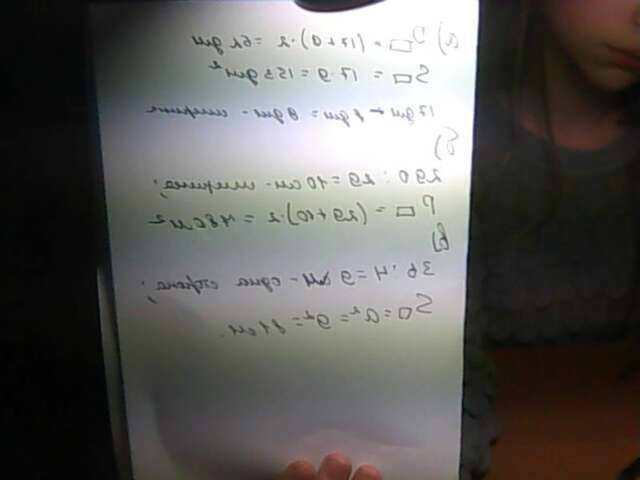 а) P▭ = (17+9)·2 = 52 дм
S▭ = 17·9 = 153 дм²
17 дм - 8 дм = 9 дм - ширина
б)
290 : 29 = 10 см - ширина;
P▭ = (29+10)·2 = 78 см²
в)
36 : 4 = 9 см - одна сторона;
S□ = a² = 9² = 81 см.